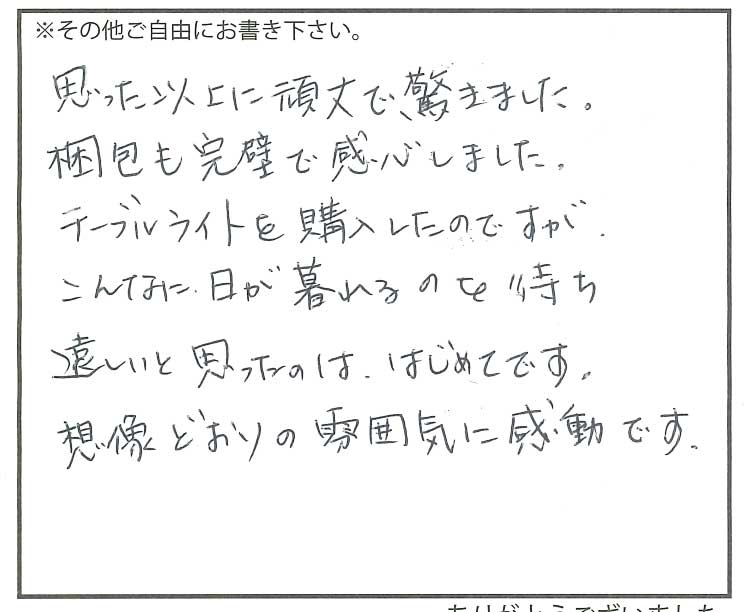 ※その他ご自由にお書き下さい。
思った以上に頑丈で、驚きました。
梱包も完璧で感心しました。
テーブルライトを購入したのですが、
こんなに日が暮れるのを待ち
遠しいと思ったのは、はじめてです。
想像どおりの雰囲気に感動です。
ありがとうございました